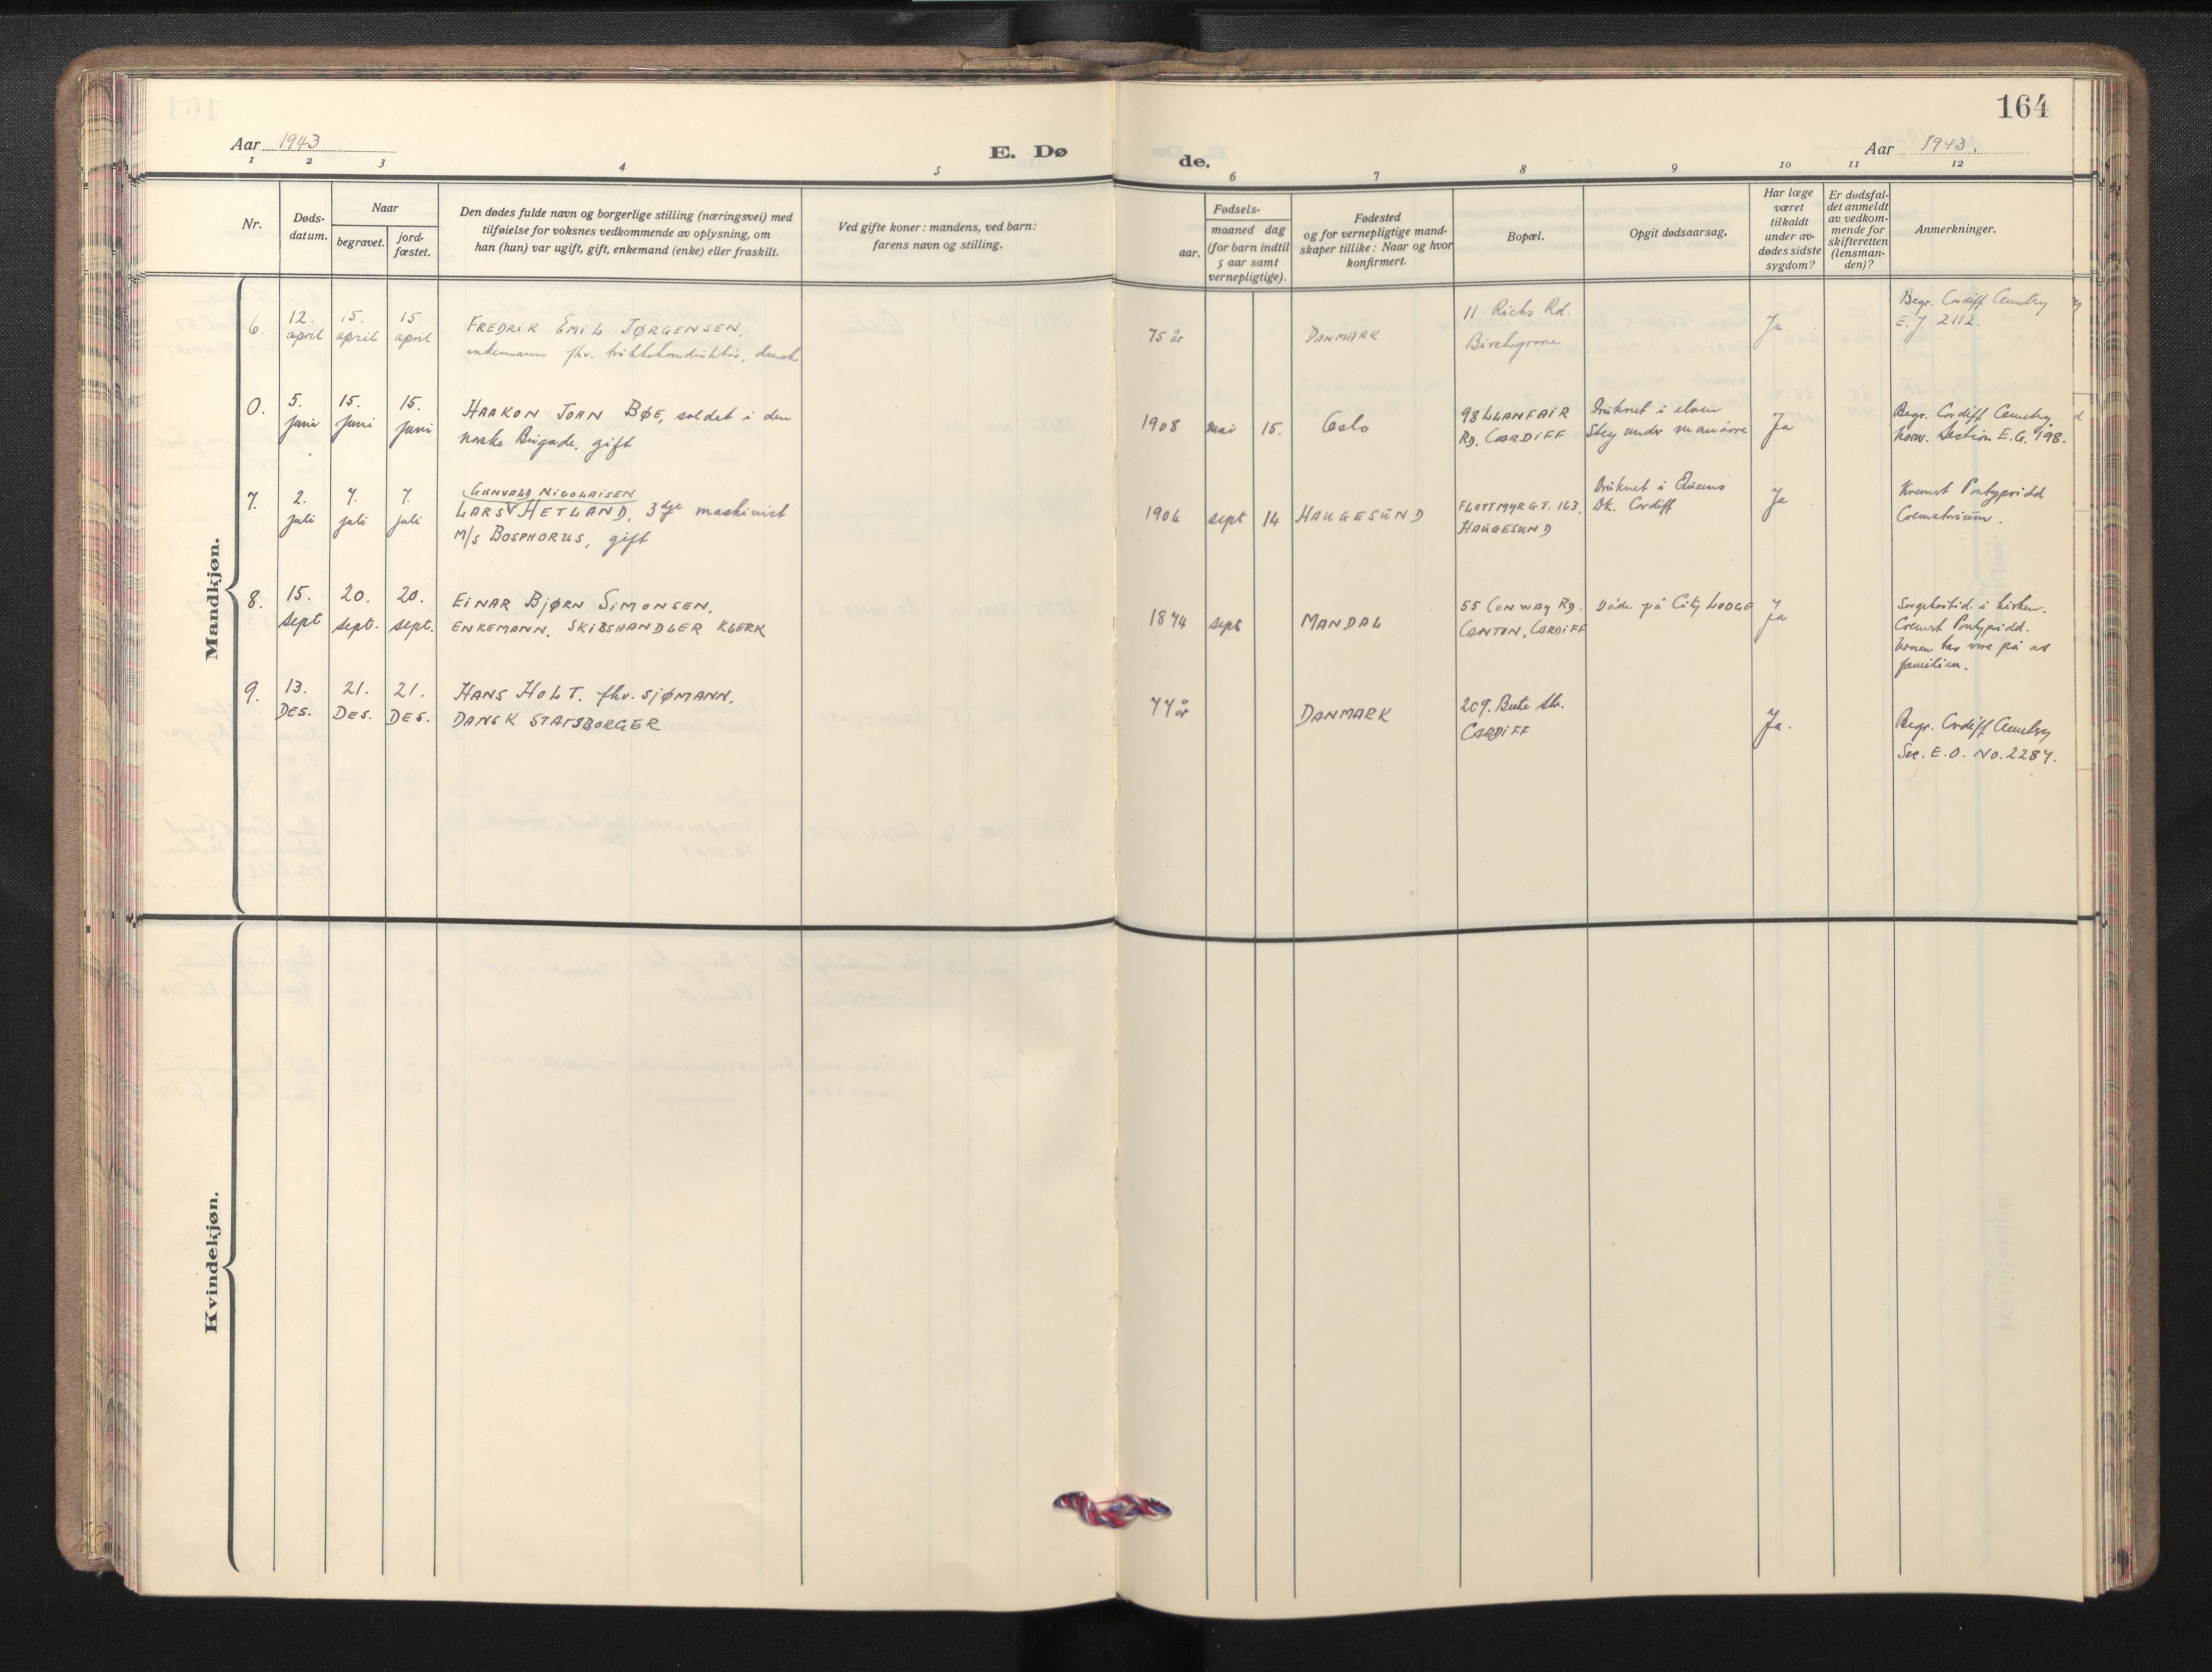 164
Aar 1943
E. Dø
de.
Aar 1943.
1 2 3 4 5 6 7 8 9 10 11 12
Nr.
Døds-
datum.
Naar
begravet.
jord-
fæstet.
Den dødes fulde navn og borgerlige stilling (næringsvei) med
tilføielse for voksnes vedkommende av oplysning, om
han (hun) var ugift, gift, enkemand (enke) eller fraskilt.
Ved gifte koner: mandens, ved barn:
farens navn og stilling.
Fødsels-
aar.
maaned dag
(for barn indtil
5 aar samt
vernepligtige).
Fødested
og for vernepligtige mand-
skaper tillike: Naar og hvor
konfirmert.
Bopæl.
Opgit dødsaarsag.
Har læge
været
tilkaldt
under av-
dødes sidste
sygdom?
Er dødsfal-
det anmeldt
av vedkom-
mende for
skifteretten
(lensman-
den)?
Anmerkninger.
Mandkjøn.
6.
12.
april
15.
april
15
april
FREDRIK EMIL JØRGENSEN,
enkemann fhv. trikkekonduktør, dansk
75 år
DANMARK
11 Richs Rd.
Birchgrove
Ja.
Begr. Cardiff Cemetry
E. J. 2112.
0.
5.
juni
15.
juni
15.
juni
HAAKON JOHN BØE, soldat i den
norske Brigade, gift
1908 mai 15.
Oslo
98 LLANFAIR
RD. CARDIFF
Druknet i elven
Stey under manøvre
Ja
Begr. Cardiff Cemetry
Norw. Section E.G. 198.
7.
2.
juli
7.
juli
7.
juli
GUNVALD NICOLAISEN
LARS HETLAND, 3dje maskinist
M/S BOSPHORUS, gift
1904 sept 14
HAUGESUND
FLOTTMYRGT. 163,
HAUGESUND
Druknet i Queens
Dk. Cardiff
Ja
Kremert Pontypridd
Crematorium.
8.
15.
sept
20.
sept.
20.
sept.
EINAR BJØRN SIMONSEN,
ENKEMANN, SKIBSHANDLER KLERK
1874 sept
MANDAL
55 CONWAY RD.
CANTON, CARDIFF
Døde på City LODGE
Ja
Sørgehøitid. i kirken.
Cremert Pontypridd.
Urnen tas vare på av
familien.
9.
13.
DES.
21.
DES.
21.
DES.
HANS HOLT. fhv. SJØMANN,
DANSK STATSBORGER
77 år
DANMARK
209. Bute Str.
CARDIFF
Ja.
Begr. Cardiff Cemetry
Sec. E.O. No. 2287.
Kvindekjøn.